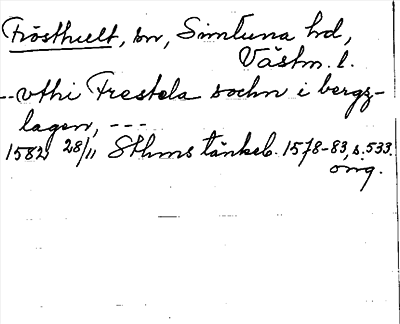 Frösthult, sn, Simtuna hd,
Västm. l.
-- vthi Frestela sochn i bergz-
lagen, ---
1582 28/11 Sthms tänkeb. 1578-83, s. 533.
orig.